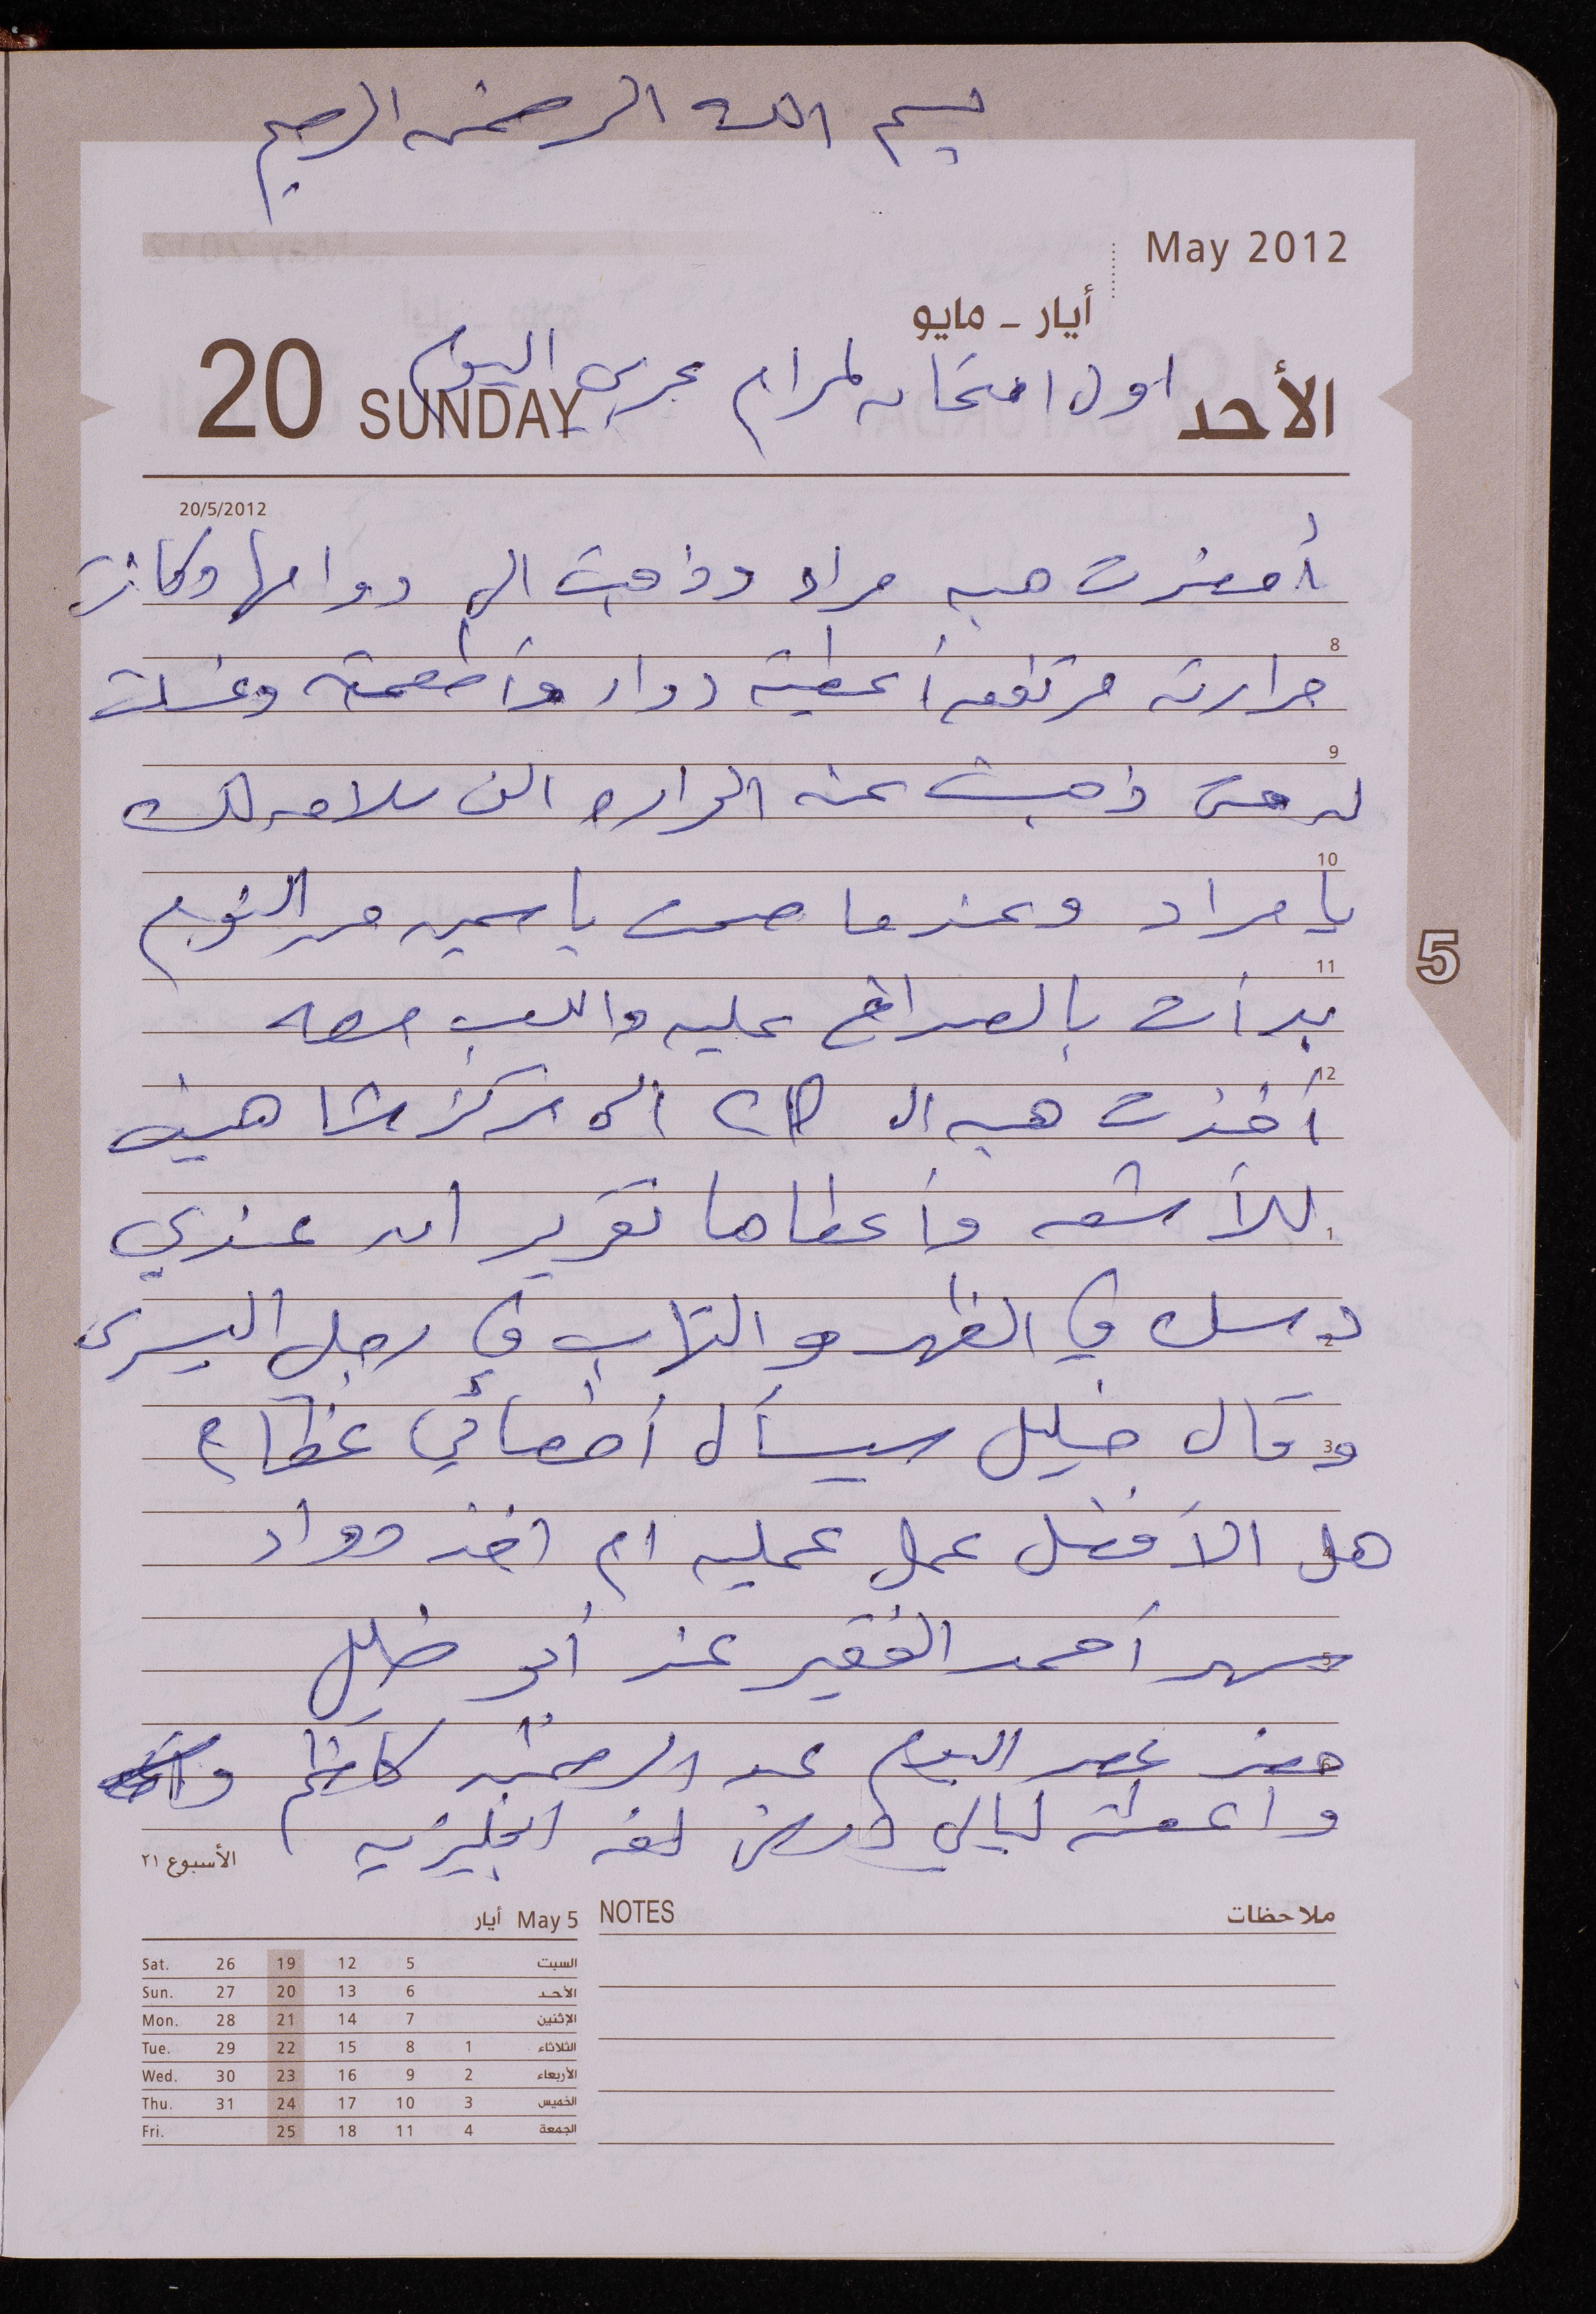 بسم الله الرحمن الرحيم
May 2012
أيار - مايو
اول امتحان لمرام عربي اليوم
الأحد
20 SUNDAY
20/5/2012
أحضرت هبه مراد وذهبت الى دوامها وكانت
8
حرارته مرتفعه أعطيته دواء وأطعمته وغسلت
9
له حتى ذهبت عنه الحراره الف سلامه لك
10
يا مراد وعندما صحت ياسمين من النوم
11
بدأت بالصراخ عليه واللعب معه
12
أخذت هبه ال CD الى مركز شاهين
للأشعه وأعطاها تقرير ان عندي
1
دسك في الظهر والتهاب في رجل اليسرى
2
وقال خليل سيسأل أخصائي عظام
3
هل الأفضل عمل عمليه ام اخذ دواء
4
سهر أحمد الفقير عند أبو خليل
5
حضر عصر اليوم عبد الرحمن كاظم
6
واعطته ليالي درس لغه انجليزيه
الأسبوع ٢١
May 5 أيار
NOTES ملاحظات
Sat. 26 19 12 5 السبت
Sun. 27 20 13 6 الأحد
Mon. 28 21 14 7 الإثنين
Tue. 29 22 15 8 1 الثلاثاء
Wed. 30 23 16 9 2 الأربعاء
Thu. 31 24 17 10 3 الخميس
Fri. 25 18 11 4 الجمعة
5